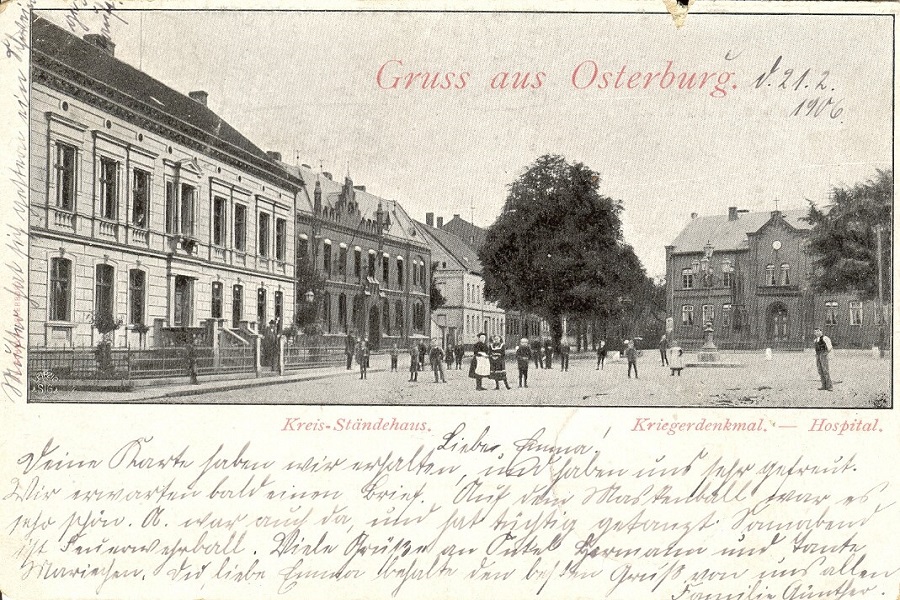 Gruss aus Osterburg.
d. 21. 2.
1906.
Kreis-Ständehaus.
Kriegerdenkmal. — Hospital.
Liebe Emma!
Deine Karte haben wir erhalten, und haben uns sehr gefreut.
Wir erwarten bald einen Brief. Auf dem Maskenball war es
sehr schön. A. war auch da, und hat tüchtig getanzt. Sonnabend
ist Feuerwehrball. Viele Grüße an Onkel Hermann und Tante
Mariechen. Du liebe Emma behalte den besten Gruß von uns allen
Familie Günther.